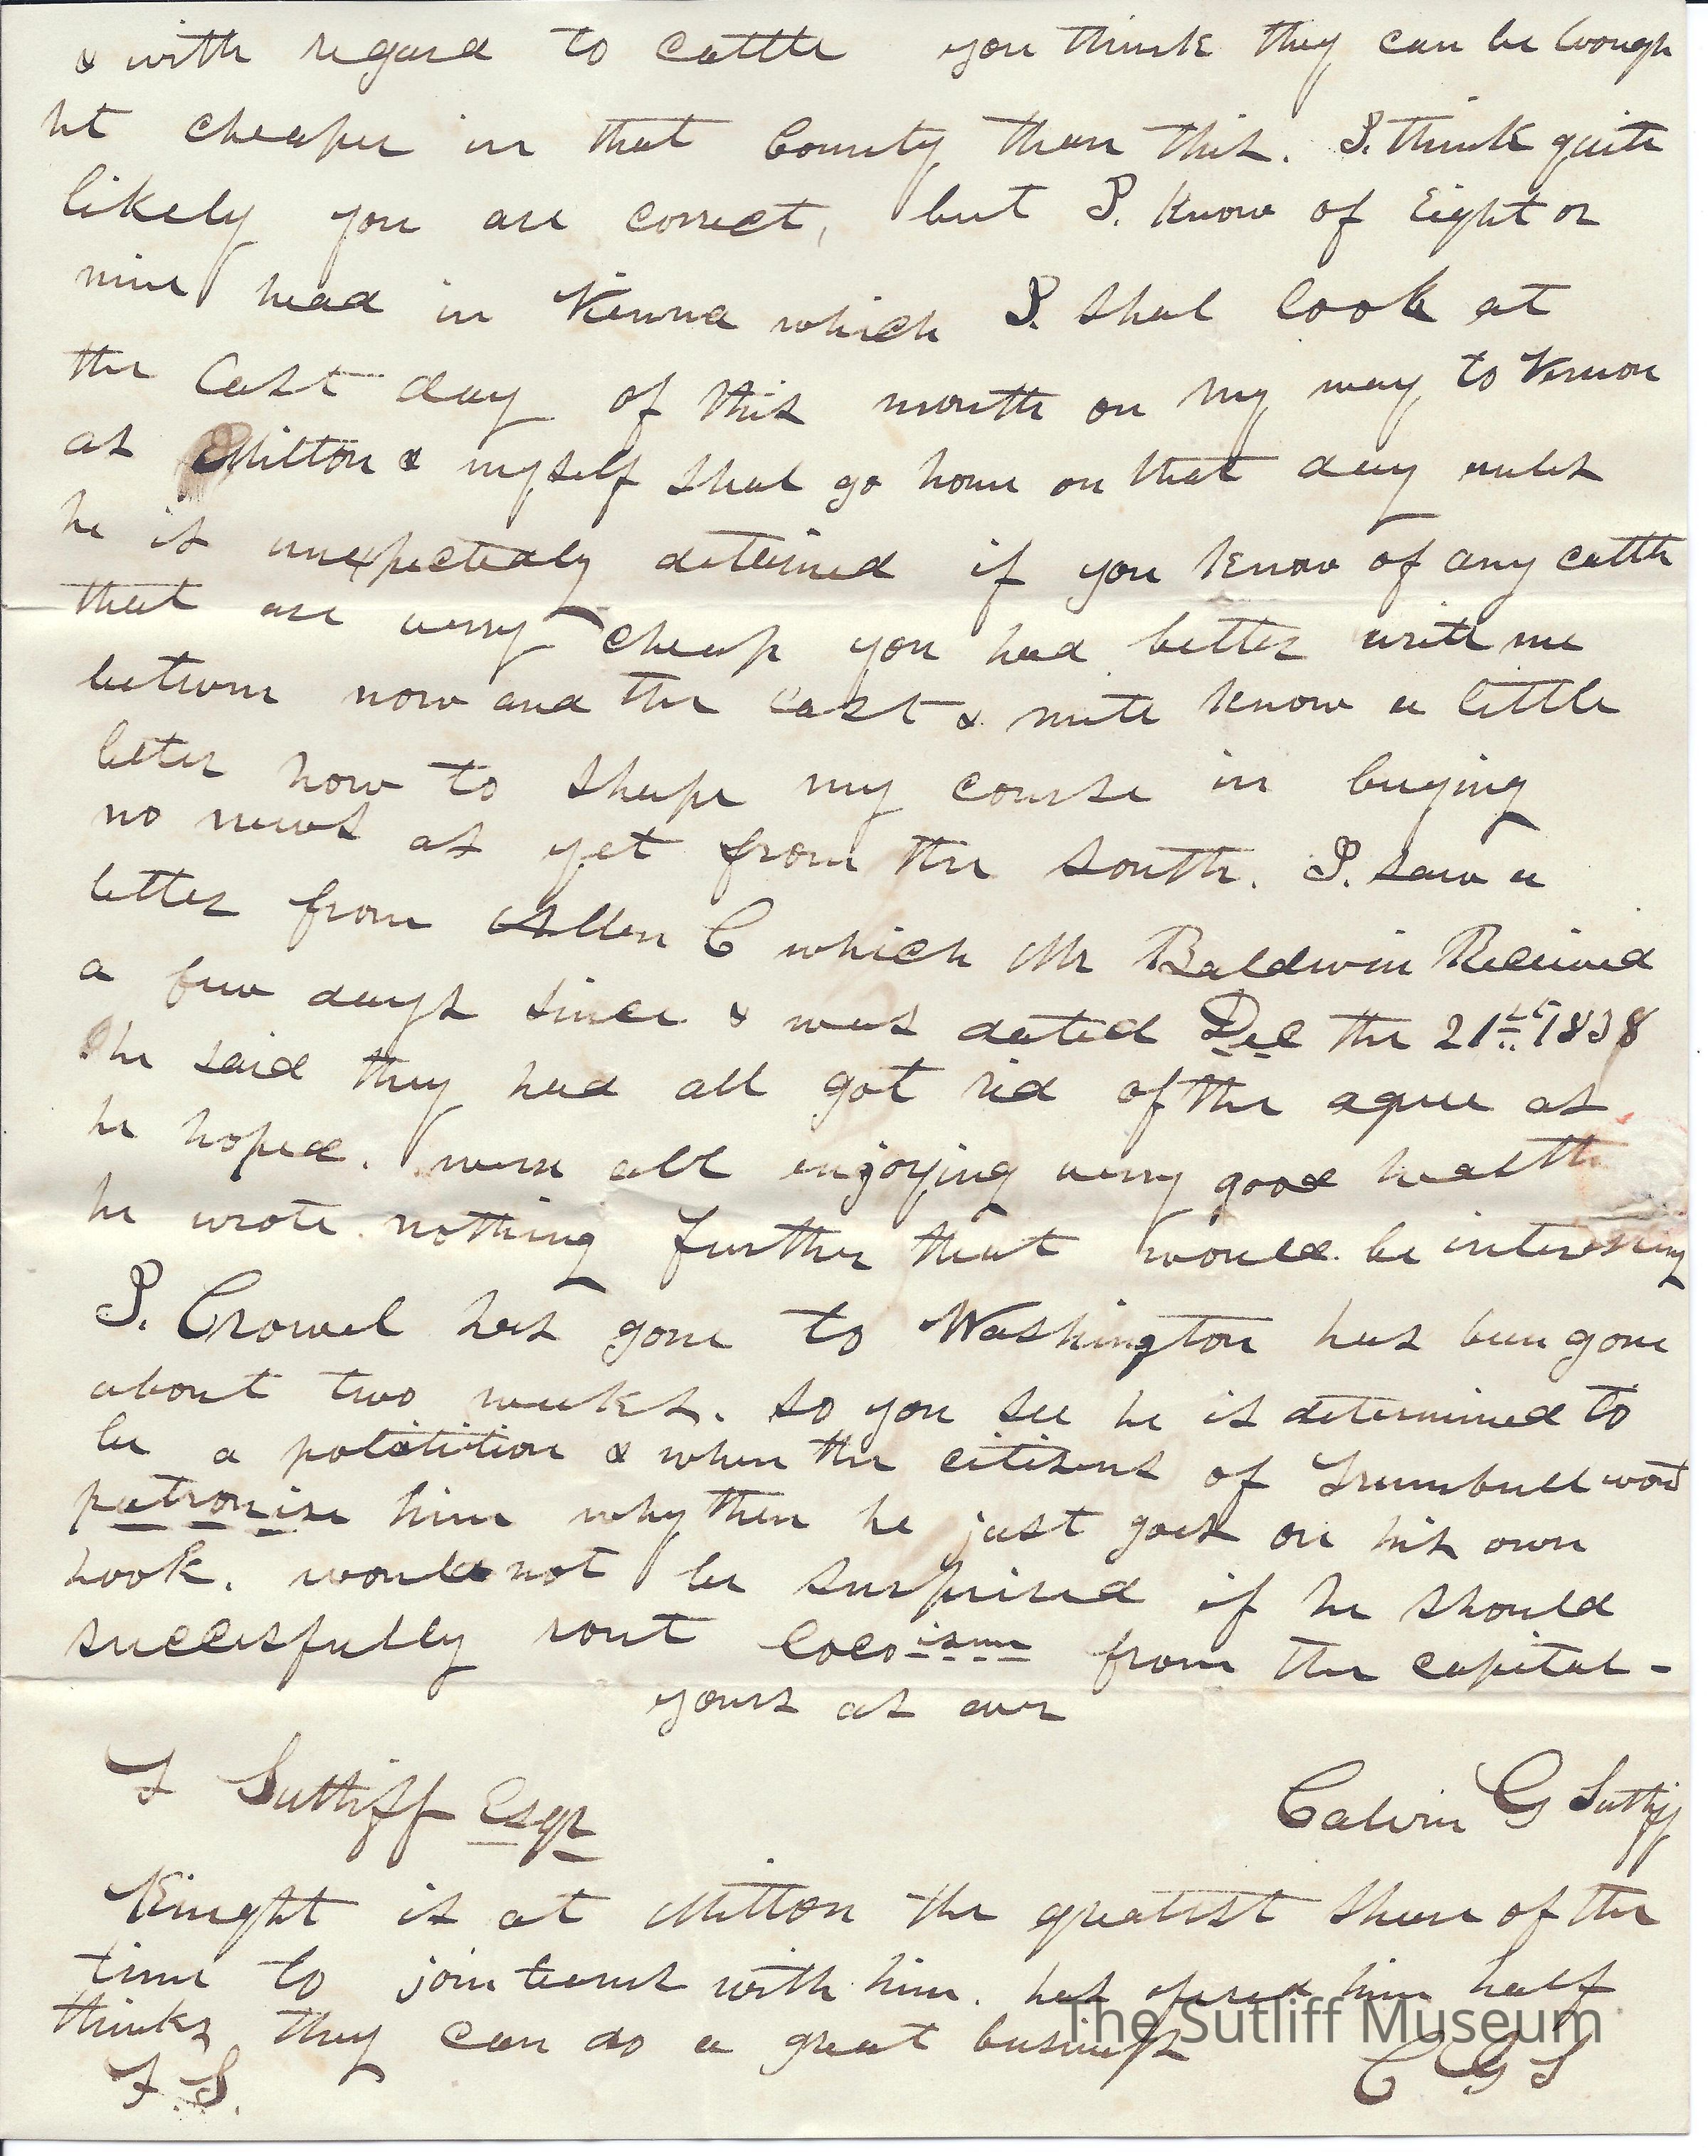 & with regard to cattle you think they can be bough
ht cheaper in that County than this. I. think quite
likely you are correct, but I. know of Eight or
nine head in Vienna which I. shal look at
the last day of this month on my way to Vernon
as Milton & myself shal go home on that day unless
he is unexpectedly detained if you know of any cattle
that are verry cheap you had better write me
betwene now and the last & mite know a little
better how to shape my course in buying
no news as yet from the south. I. saw a
letter from Allen C which Mr Baldwin Received
a few days since & was dated Dec the 21st 1838
he said they had all got rid of the ague as
he hoped. were all enjoying verry good health
he wrote nothing further that would be interesting
I. Crowel has gone to Washington has been gone
about two weeks. so you see he is determined to
be a polatition & when the citizens of Trumbull wont
patronise him why then he just goes on his own
hook. would not be surprised if he should
succesfully rout locoisme from the capital-
yours as ever
F Sutliff Esqr
Calvin G Sutliff
Kinght is at Milton the greatest share of the
time to join teams with him. has offered him half
thinks they can do a great business
F. S.
C G S
The Sutliff Museum